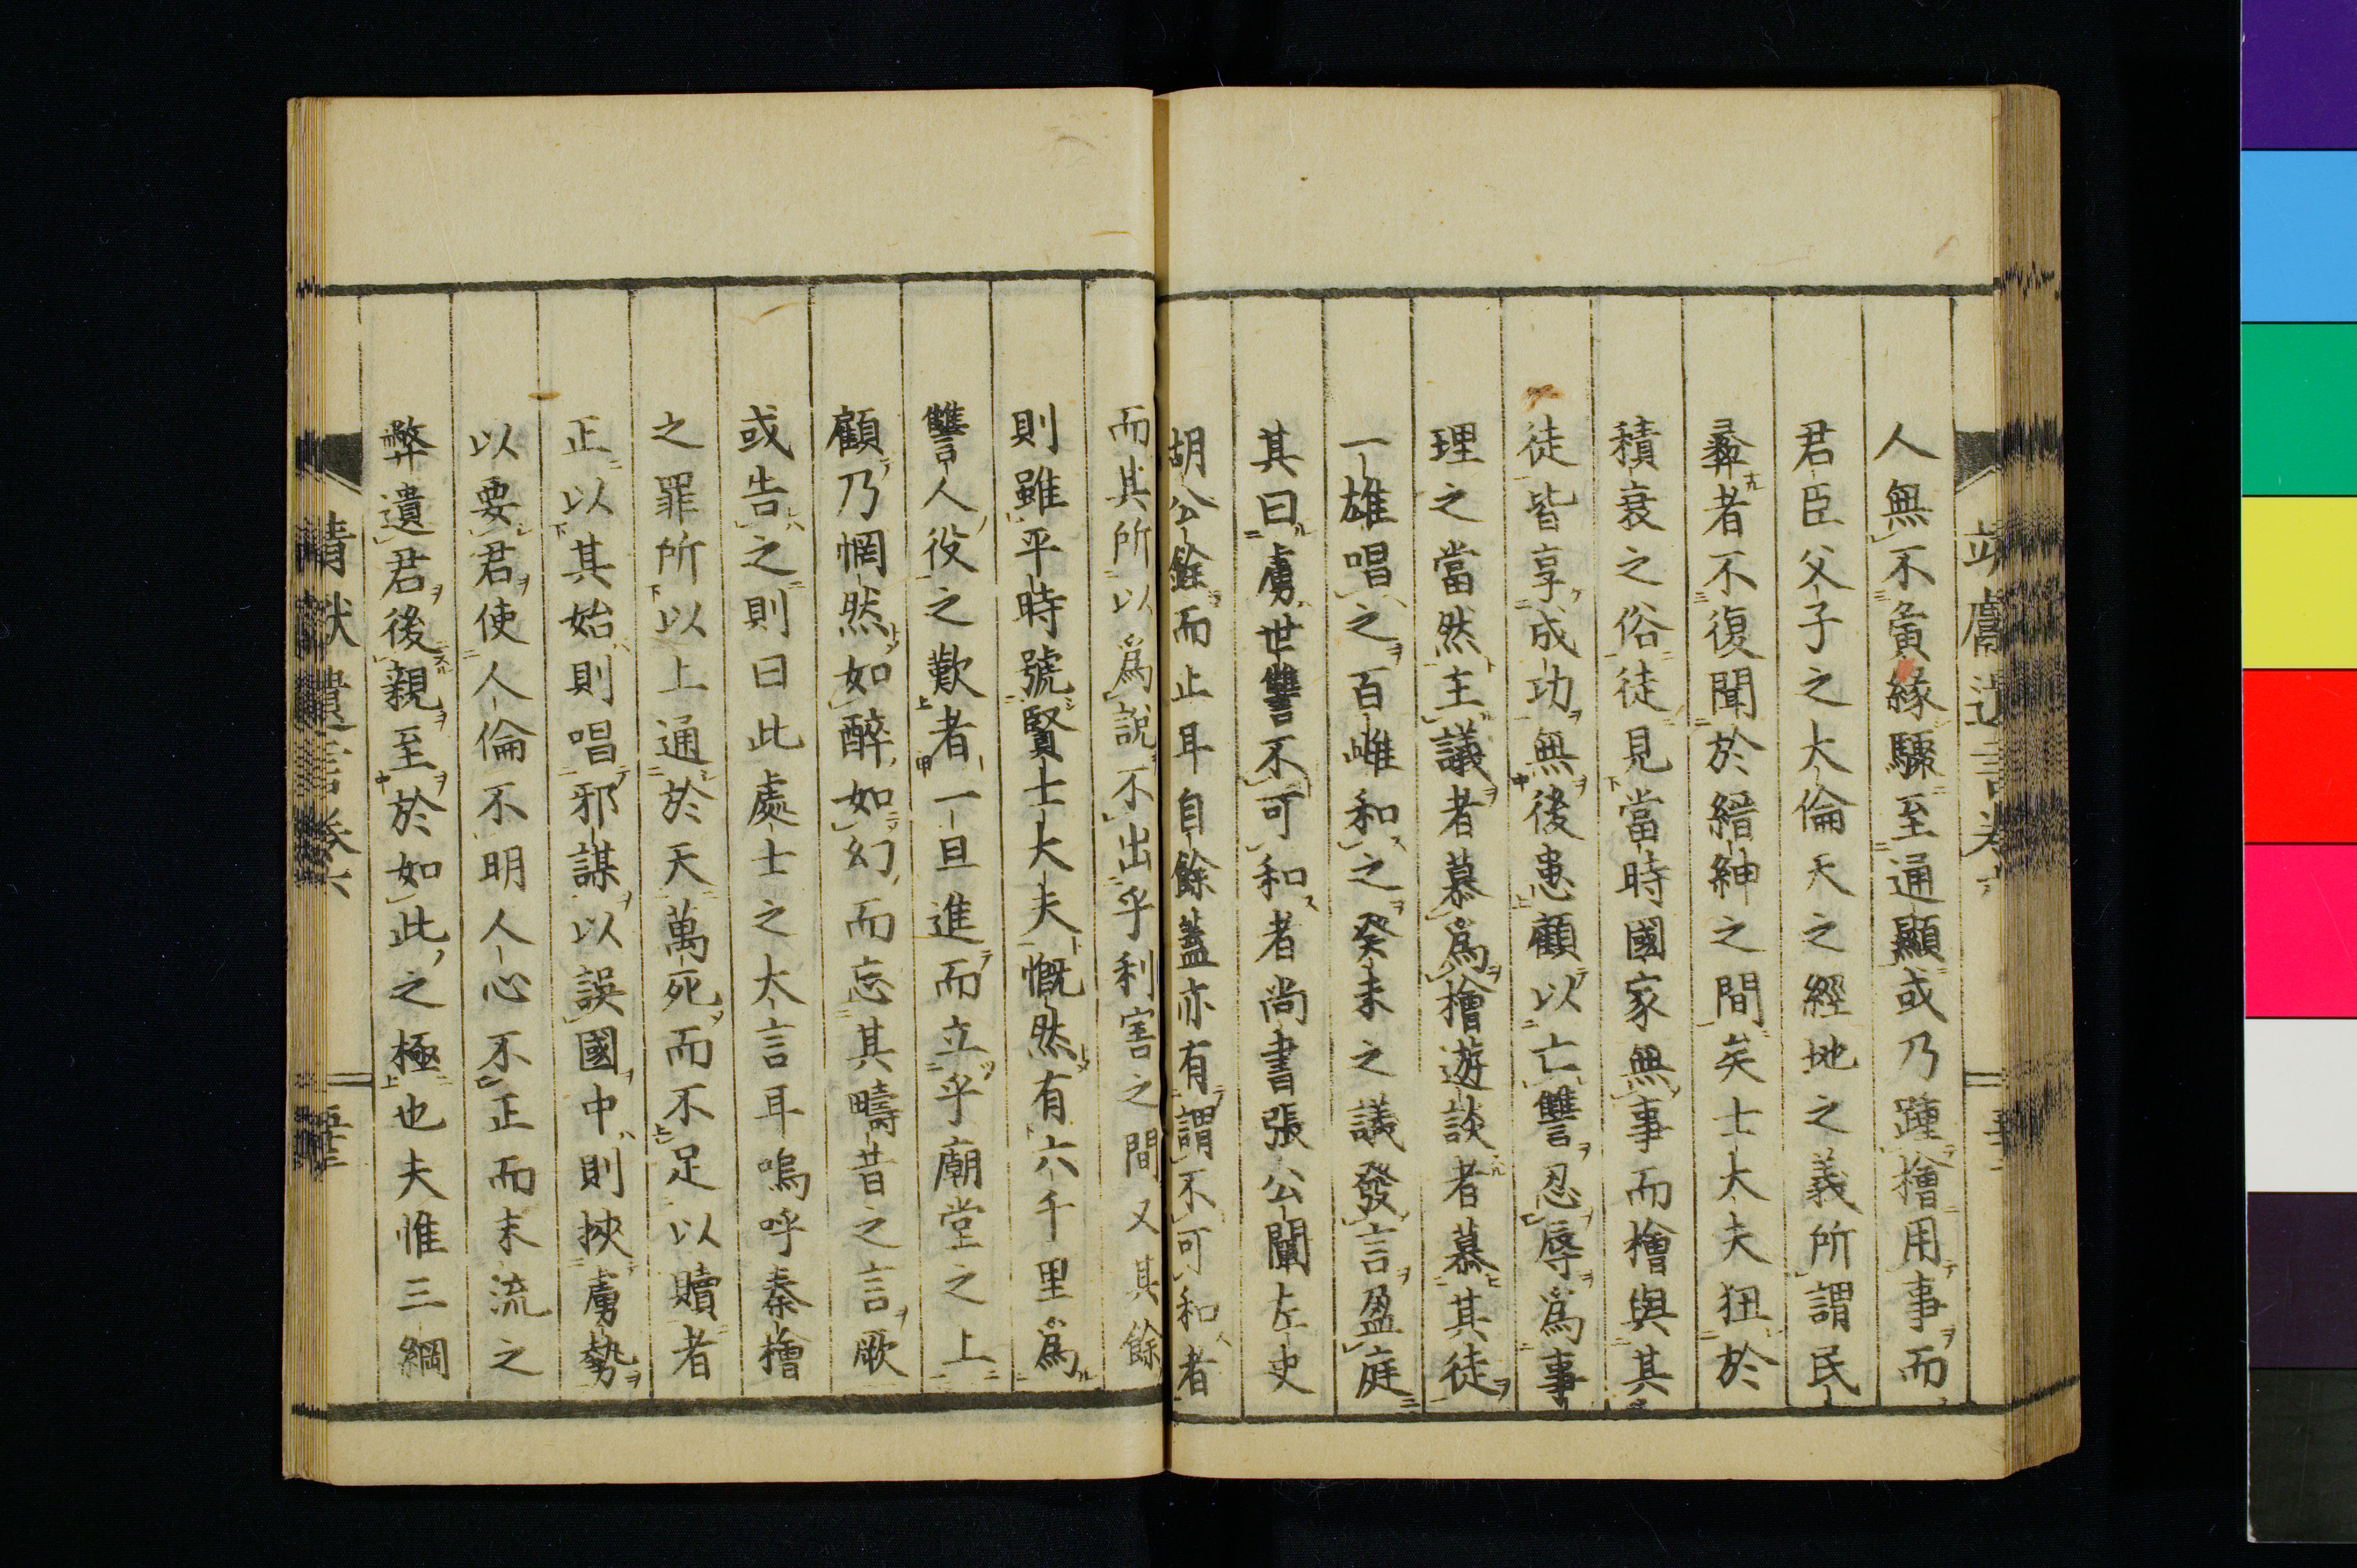 人無不夤緣驟至通顯或乃踵檜用事而
君臣父子之大倫天之經地之義所謂民
彛者不復聞於縉紳之間矣士大夫狃於
積衰之俗徒見當時國家無事而檜與其
徒皆享成功無後患顧以亡讐忍辱爲事
理之當然主議者慕爲檜遊談者慕其徒
一雄唱之百雌和之癸未之議發言盈庭
其曰虜世讐不可和者尚書張公闡左史
胡公銓而止耳自餘蓋亦有謂不可和者
而其所以爲說不出乎利害之間又其餘
則雖平時號賢士大夫慨然有六千里爲
讐人役之歎者一旦進而立乎廟堂之上
顧乃惘然如醉如幻而忘其疇昔之言厥
或告之則曰此處士之大言耳嗚呼秦檜
之罪所以上通於天萬死而不足以贖者
正以其始則唱邪謀以誤國中則挾虜勢
以要君使人倫不明人心不正而末流之
弊遺君後親至於如此之極也夫惟三綱
靖獻遺言卷六